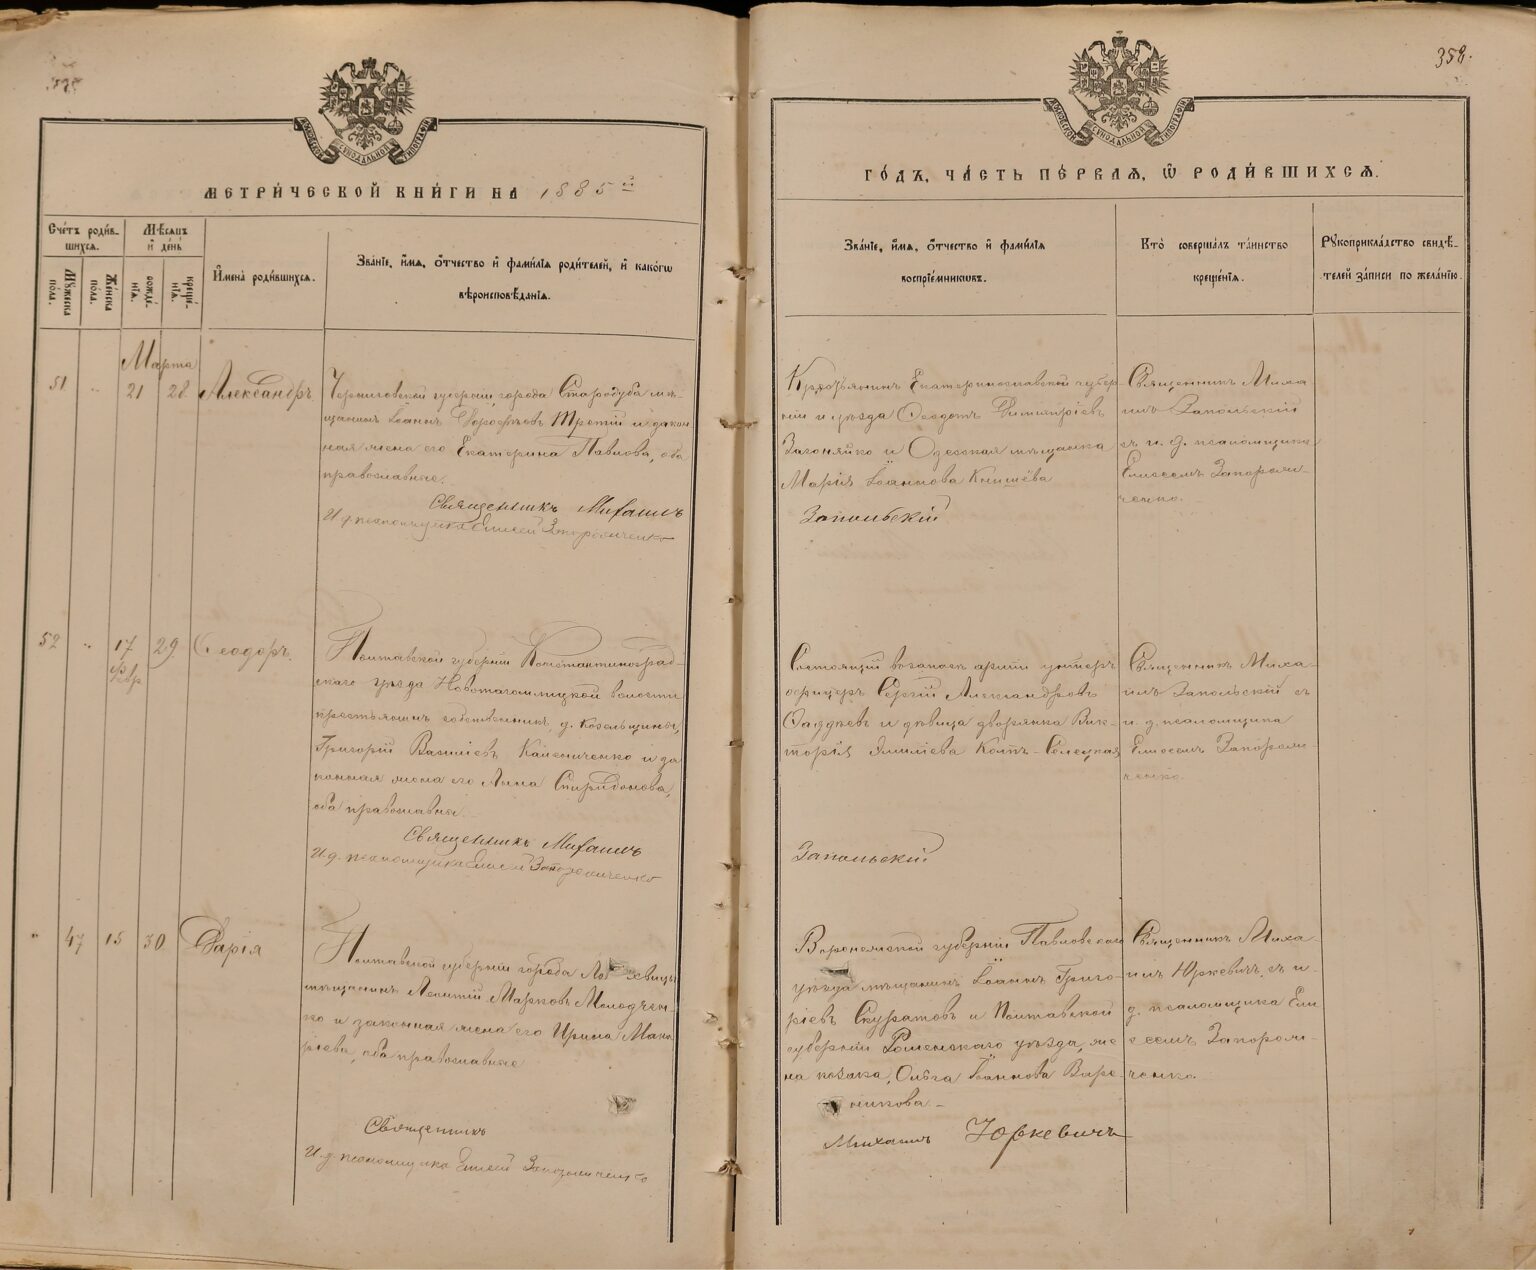 358.
МОСКОВСКОЙ СѴНОДАЛЬНОЙ ТИПОГРАФІИ
МОСКОВСКОЙ СѴНОДАЛЬНОЙ ТИПОГРАФІИ
МЕТРИ́ЧЕСКОЙ КНИ́ГИ НА 1885 й
ГО́ДЪ, ЧА́СТЬ ПЕ́РВАЯ, Ѿ РОДИ́ВШИХСЯ.
Сче́тъ роди́в-
шихся.
Мꙋ́жеска по́ла.
Же́нска по́ла.
Мѣ́сяцъ
и҆ де́нь
рожде́-
нїя.
креще́-
нїя.
И҆мена̀ роди́вшихся.
Зва́нїе, и҆́мя, ѻ҆́тчество и҆ фами́лїя роди́телей, и҆ како́гѡ
вѣроисповѣ́данїя.
Зва́нїе, и҆́мя, ѻ҆́тчество и҆ фами́лїя
воспрїе́мникѡвъ.
Кто̀ соверша́лъ та́инство
креще́нїя.
Рꙋкоприкла́дство свидѣ́-
телей за́писи по жела́нїю.
Марта
51 " 21 28 Александръ
Черниговской губерніи, города Стародуба мѣ-
щанинъ Іоаннъ Третій и закон-
ная жена его Екатерина Павлова, оба
православные.
Священникъ Михаилъ
И. д. псаломщика Елисей Запорожченко
Крестьянинъ Екатеринославской губер-
ніи и уѣзда Ѳеодотъ Димитріевъ
Загоняйко и Одесская мѣщанка
Марія Іоаннова Кнышева
Запольскій
Священникъ Миха
илъ Запольскій
съ и. д. псаломщика
Елисеемъ Запорож-
ченко.
52 " 17 29 Ѳеодоръ.
Февр
Полтавской губерніи Константиноград-
скаго уѣзда волости
крестьянинъ собственникъ, д. Козельщины,
Григорій Василіевъ и за
конная жена его Анна Спиридонова,
оба православны.
Священникъ Михаилъ
И. д. псаломщика Елисей Запорожченко
Состоящій въ запасѣ арміи унтеръ
офицеръ Сергій Александровъ
Ѳаддѣевъ и дѣвица дворянка Вик-
торія
Запольскій
Священникъ Миха-
илъ Запольскій съ
и. д. псаломщика
Елисеемъ Запорож-
ченко
" 47 15 30 Дарія
Полтавской губерніи города
мѣщанинъ Леонтій Марковъ Молодчен-
ко и законная жена его Ирина Мака
ріева, оба православные
Священникъ
И. д. псаломщика Елисей Запорожченко
Воронежской губерніи Павловскаго
уѣзда мѣщанинъ Іоаннъ Григо-
ріевъ Скуратовъ и Полтавской
губерніи Роменскаго уѣзда, же
на козака, Ольга Іоаннова
Михаилъ Юркевичъ
Священникъ Миха-
илъ Юркевичъ, съ и.
д. псаломщика Ели
сеемъ Запорож-
ченко